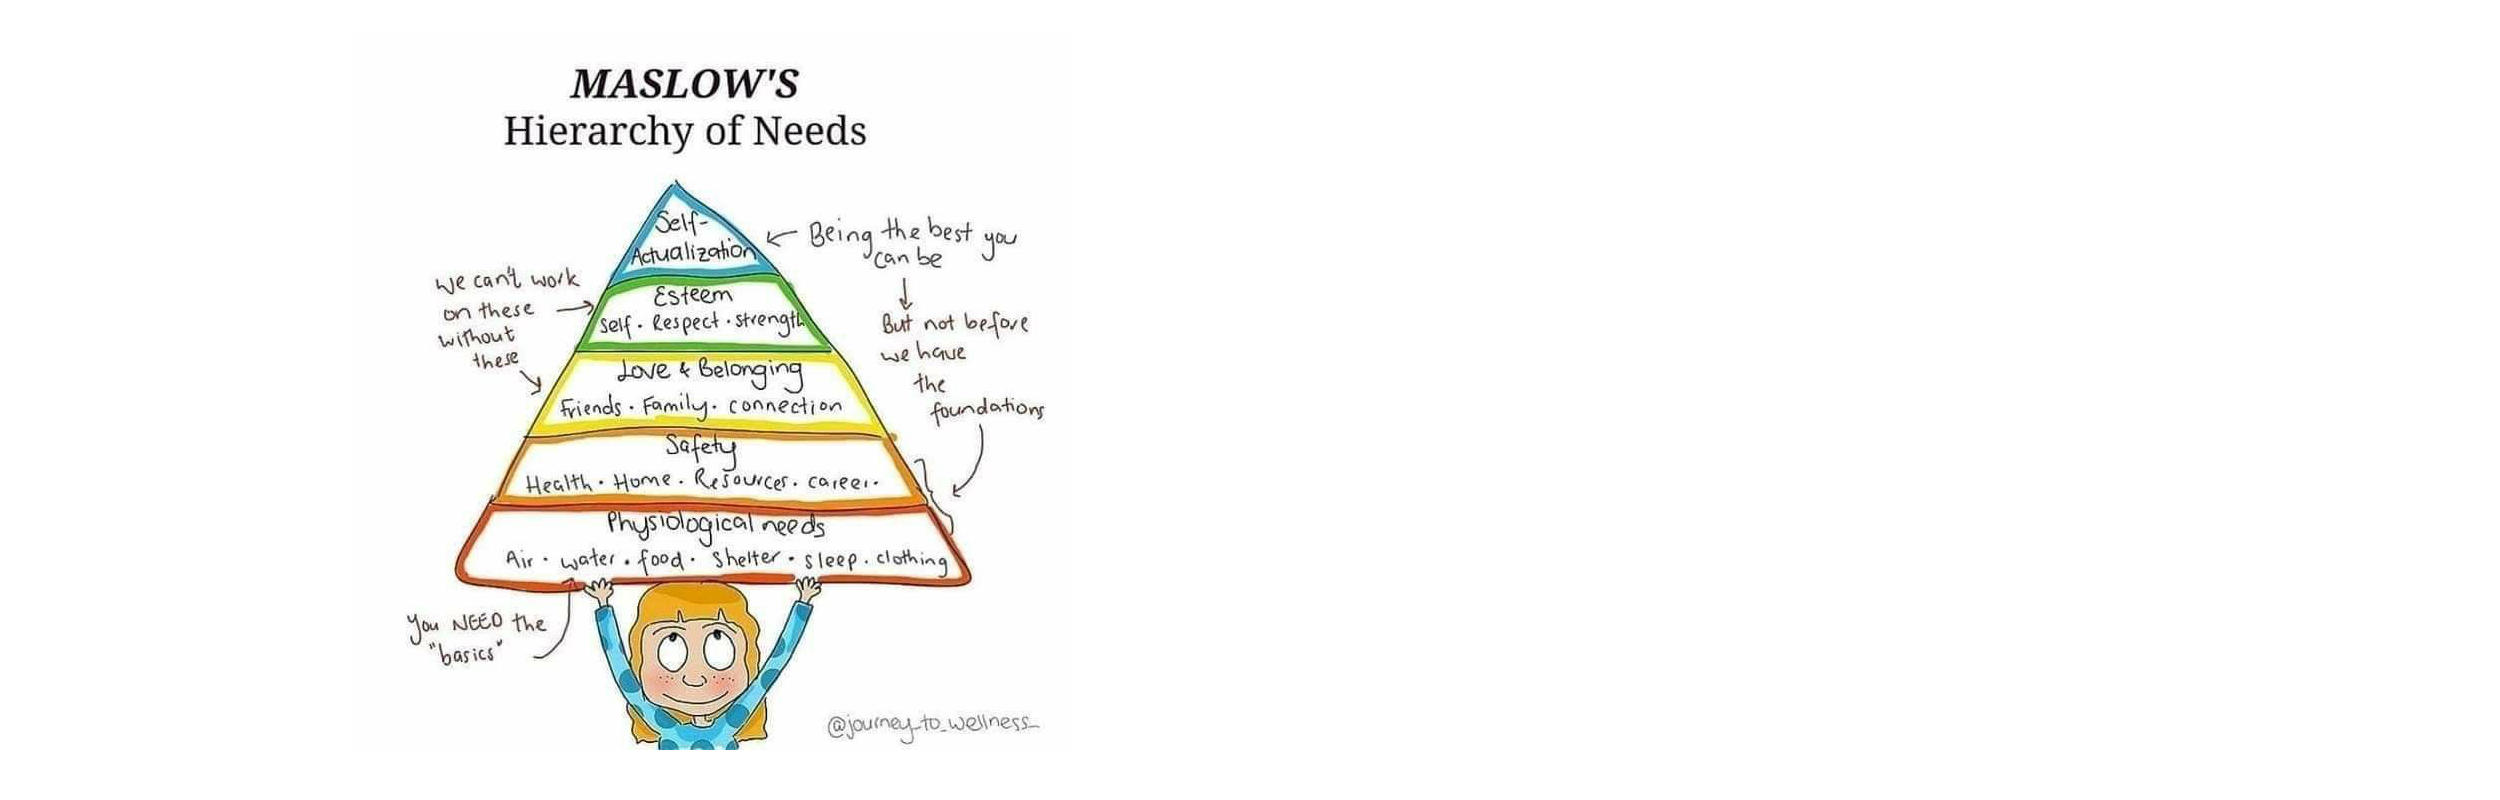 MASLOW'S
Hierarchy of Needs
Self-
Actualization
Being the best you
can be
But not before
we have
the
foundations
We can't work
on these
without
these
Esteem
Self · Respect · strength
Love & Belonging
Friends · Family · connection
Safety
Health · Home · Resources · career ·
Physiological needs
Air · water · food · shelter · sleep · clothing
You NEED the
"basics"
@journey_to_wellness_